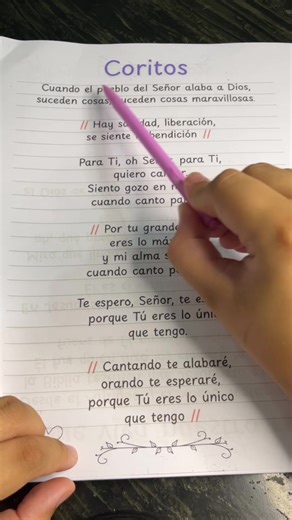 Coritos
Cuando el pueblo del Señor alaba a Dios,
suceden cosas, suceden cosas maravillosas.
// Hay sanidad, liberación,
se siente bendición //
Para Ti, oh Señor, para Ti,
quiero cantar
Siento gozo en
cuando canto
// Por tu grande
eres lo más
y mi alma
cuando canto
Te espero, Señor, te
porque Tú eres lo único
que tengo.
// Cantando te alabaré,
orando te esperaré,
porque Tú eres lo único
que tengo //